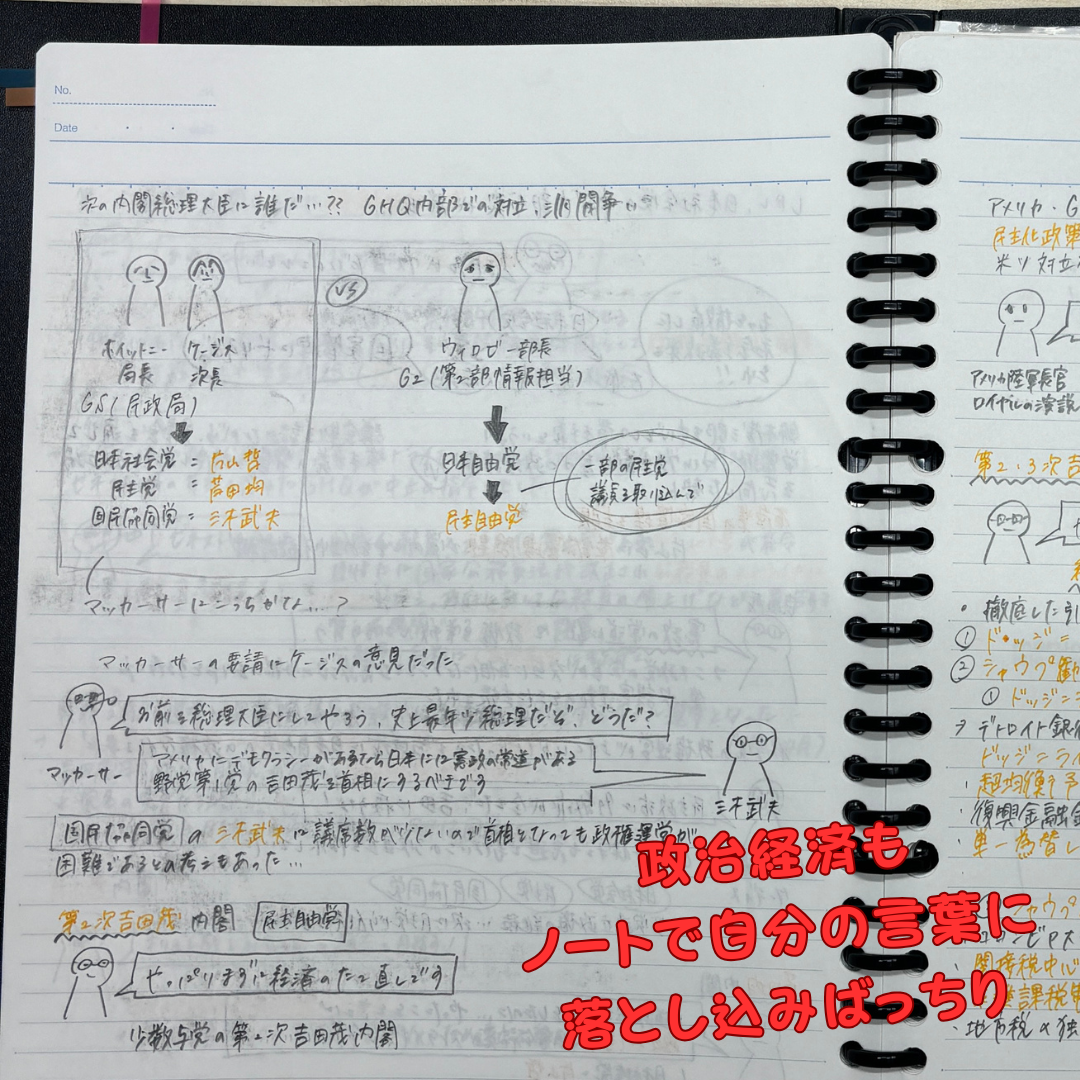 No.
Date
次の内閣総理大臣は誰だ…?? GHQ内部での対立
VS
ホイットニー局長
ケージス次長
GS(民政局)
日本社会党 = 片山哲
民主党 = 芦田均
国民協同党 = 三木武夫
ウィロビー部長
G2(第2部情報担当)
日本自由党
民主自由党
一部の民主党
議員を取り込んで
マッカーサーはこっちかな…?
マッカーサーの要請はケージスの意見だった
マッカーサー
お前を総理大臣にしてやろう、史上最年少総理だぞ、どうだ?
アメリカにデモクラシーがあるなら日本には憲政の常道がある
野党第1党の吉田茂を首相にするべきです
三木武夫
国民協同党の三木武夫は議席数が少ないので首相となっても政権運営が
困難であるとの考えもあった…
第2次吉田茂内閣 民主自由党
やっぱりまずは経済のたて直しです
少数与党の第2次吉田茂内閣
アメリカ・G
民主化政策
米ソ対立
アメリカ陸軍長官
ロイヤルの演説
第2・3次吉
・徹底した引
① ドッジ=
② シャウプ勧
① ドッジ=
デトロイト銀
ドッジ=ライ
・超均衡予
・復興金融金
・単一為替レ
シャウプ
・間接税中心
課税
・地方税の独
政治経済も
ノートで自分の言葉に
落とし込みばっちり